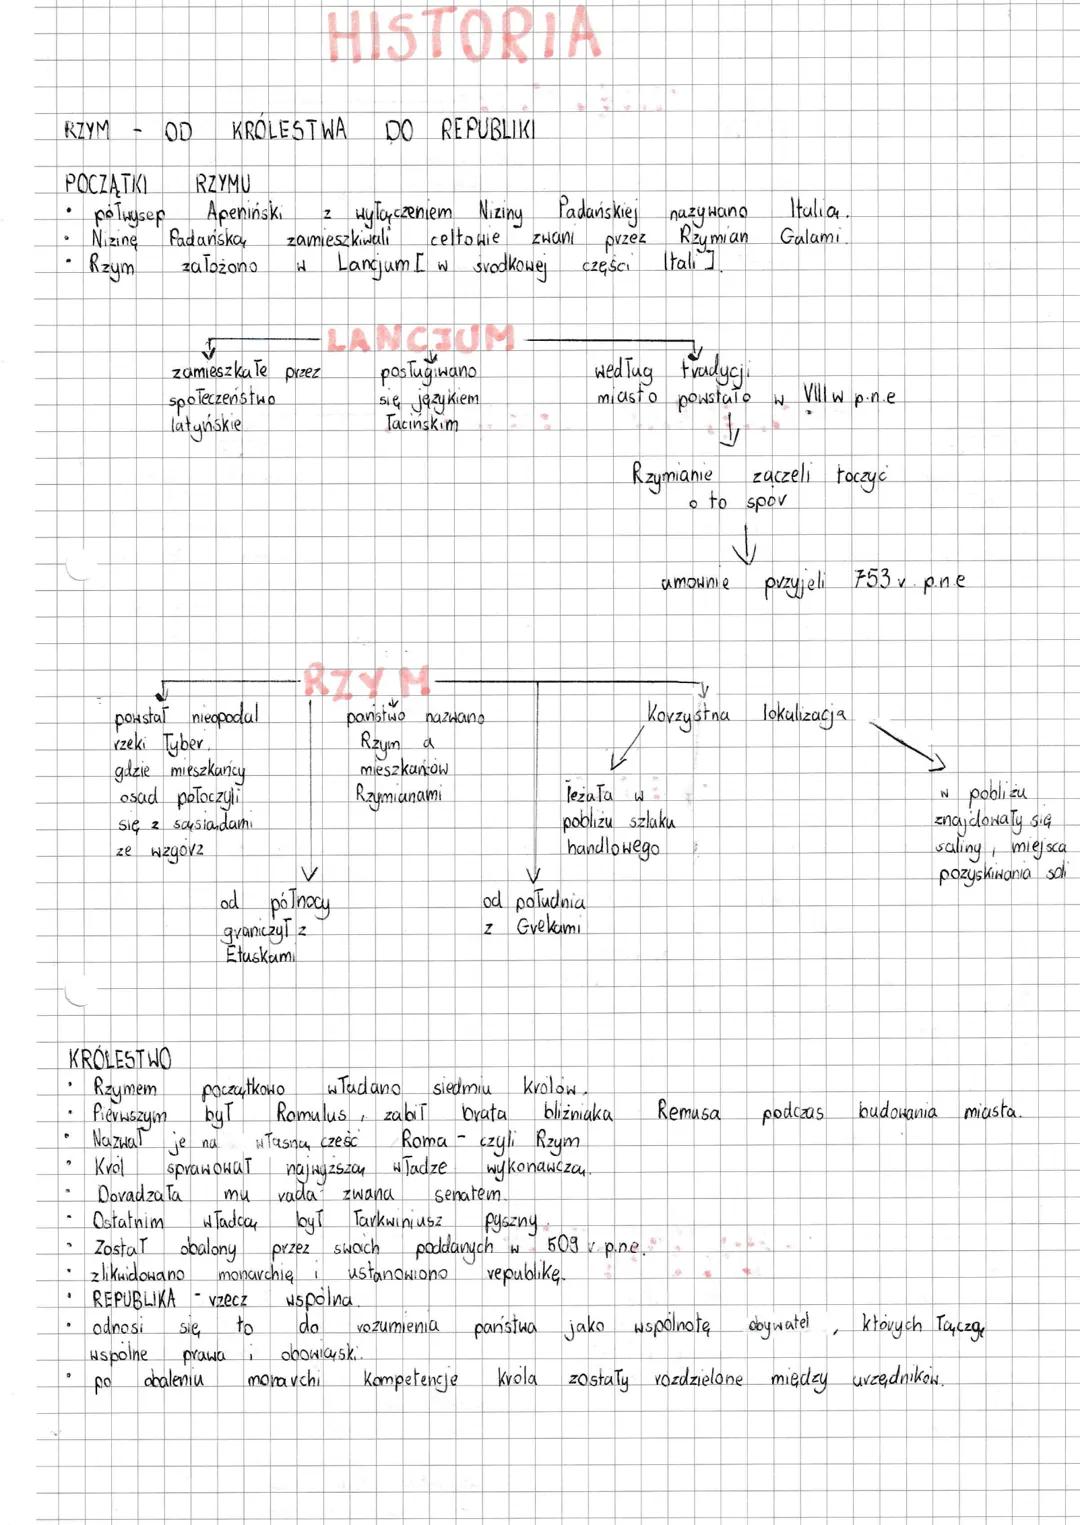 HISTORIA
RZYM - OD KRÓLESTWA DO REPUBLIKI
POCZĄTKI RZYMU
• półwysep Apeniński z wyłączeniem Niziny Padańskiej nazywano Italią.
• Nizinę Padańską zamieszkiwali celtowie zwani przez Rzymian Galami.
• Rzym założono w Lancjum [ w środkowej części Itali ].
LANCJUM
zamieszkałe przez
społeczeństwo
latyńskie
posługiwano
się językiem
łacińskim
według tradycji
miasto powstało w VIII w p.n.e
Rzymianie zaczeli toczyć
o to spór
umownie przyjeli 753 r. p.n.e
RZYM
powstał nieopodal
rzeki Tyber,
gdzie mieszkańcy
osad połoczyli
się z sąsiadami
ze wzgórz
państwo nazwano
Rzym a
mieszkańców
Rzymianami
Korzystna lokalizacja
leżała w
pobliżu szlaku
handlowego
w pobliżu
znajdowały się
saliny, miejsca
pozyskiwania soli
od północy
graniczył z
Etuskami
od południa
z Grekami
KRÓLESTWO
• Rzymem początkowo władano siedmiu królów.
• Pierwszym był Romulus, zabił brata bliźniaka Remusa podczas budowania miasta.
• Nazwał je na własną cześć Roma - czyli Rzym
• Król sprawował najwyższą władze wykonawczą.
• Doradzała mu rada zwana senatem.
• Ostatnim władcą był Tarkwiniusz pyszny.
• Został obalony przez swoich poddanych w 509 r. p.n.e.
• zlikwidowano monarchię i ustanowiono republikę.
• REPUBLIKA - rzecz wspólna.
• odnosi się to do rozumienia państwa jako wspólnotę obywatel, których łączą
wspólne prawa i obowiąski.
• po obaleniu monarchi kompetencje króla zostały rozdzielone między urzędników.